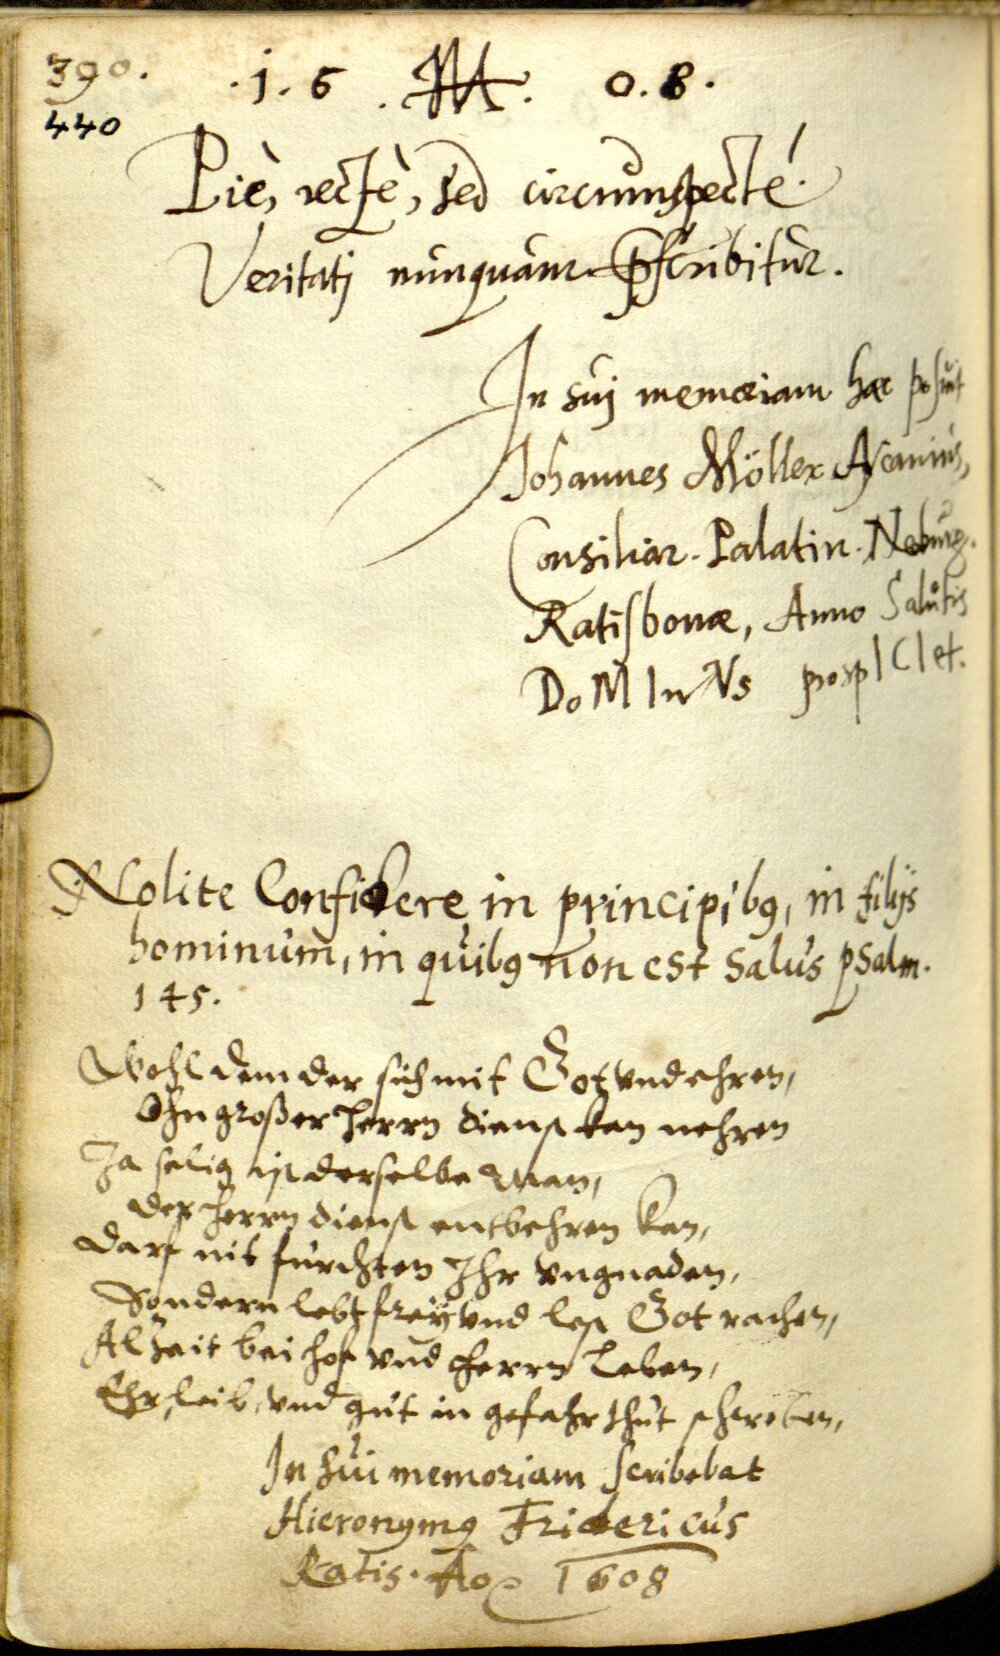 390.
440
.1.6 . M . 0.8.
Piè, rectè, sed circumspectè.
Veritatj nunquam pscribitur.
In suj memoriam hæc posuit
Johannes Möller Ascanius,
Consiliar. Palatin. Neburg.
Ratisbonæ, Anno Salutis
DoMInVs prospICIet.
Nolite Confidere in principibꝰ, in filijs
hominum, in quibꝰ non est salus psalm.
145.
Wohl dem der sich mit Got vnd ehren,
Ohn großer herrn dienst kan nehren
Ja selig ist derselbe Man,
der herrn dienst entbehren kan,
darf nit fürchten Ihr vngnaden,
Sondern lebt freÿ vnd lest Got rathen,
Alzeit bei hof vnd herrn leben,
Ehr, leib, vnd gut in gefahr thut schweben,
In sui memoriam scribebat
Hieronymꝰ Fridericus
Ratis. Ao 1608